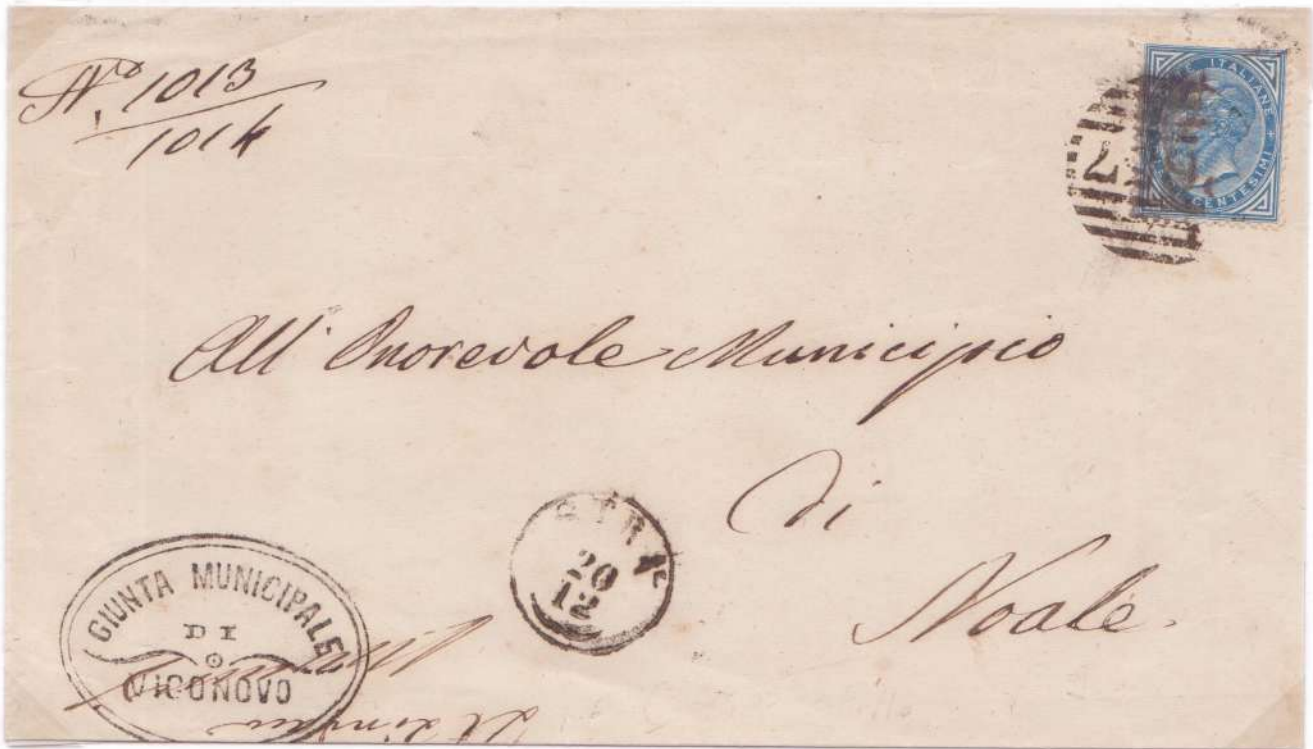 Nº. 1013
1014
E ITALIANE
CENTESIMI
All' Onorevole Municipio
di
Noale.
STRA
20
12
GIUNTA MUNICIPALE
DI
VIGONOVO